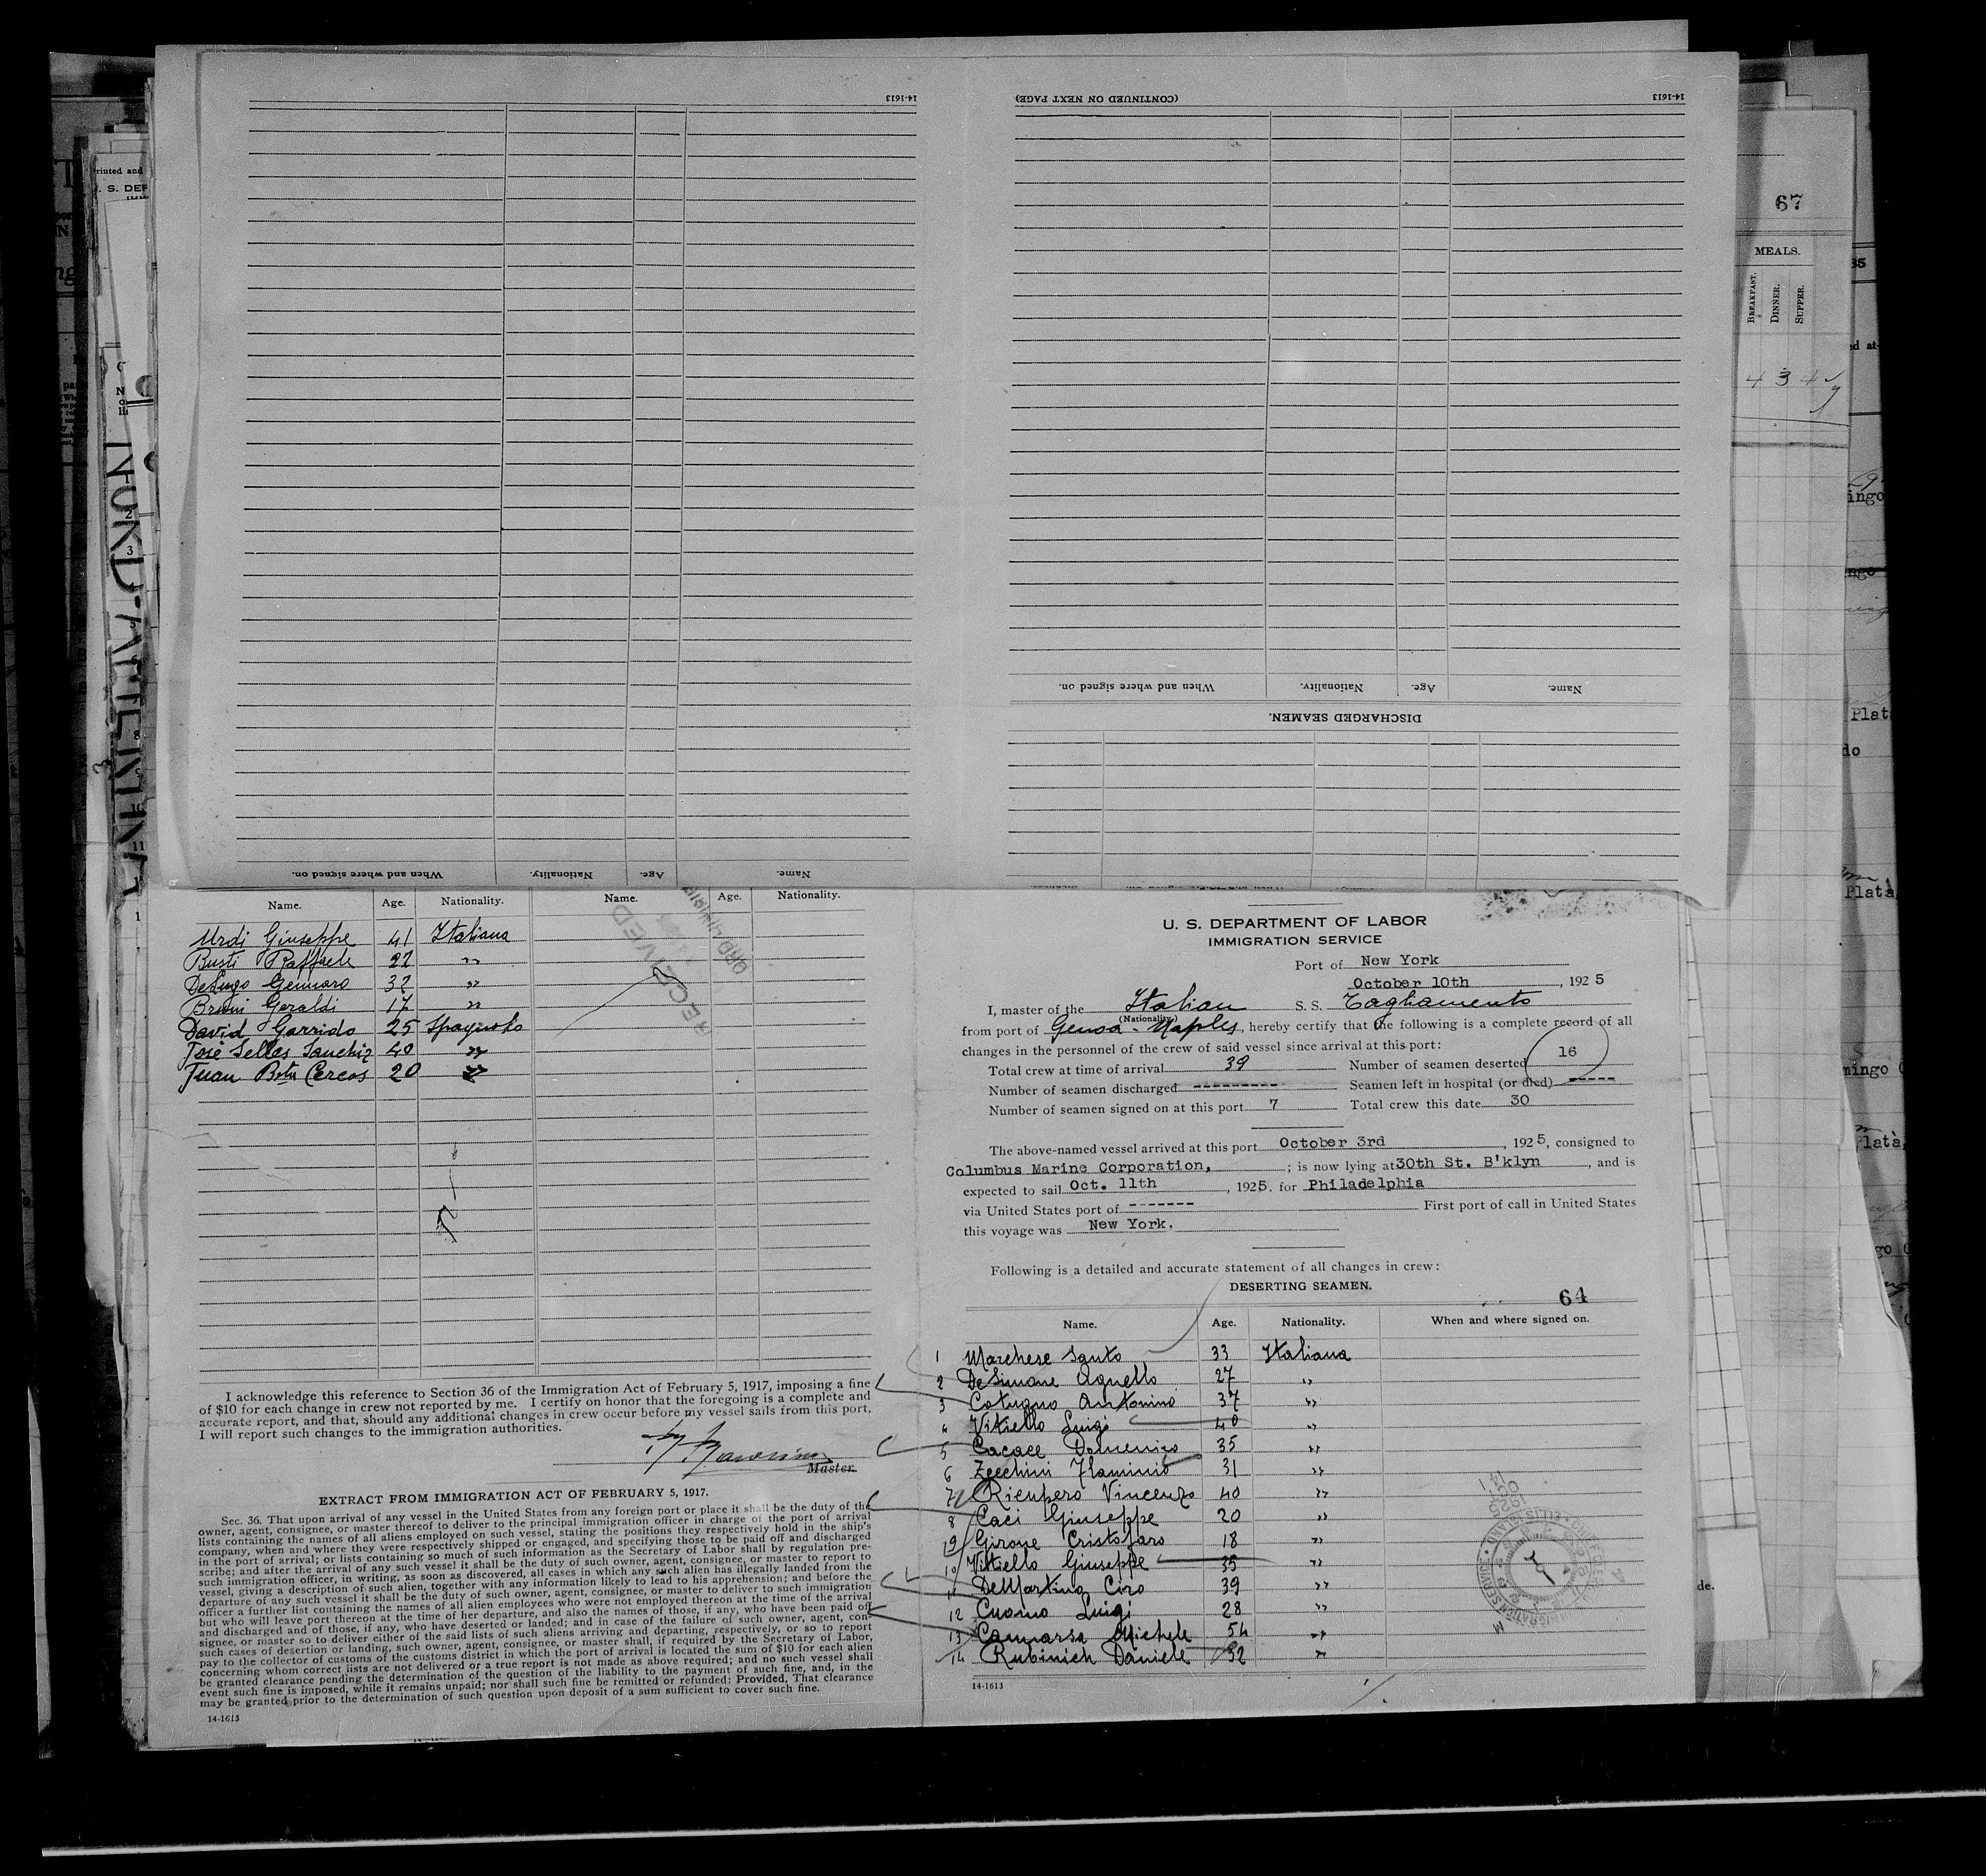 14-1613
(CONTINUED ON NEXT PAGE)
14-1613
When and where signed on.
Nationality.
Age.
Name.
DISCHARGED SEAMEN.
When and where signed on.
Nationality.
Age.
Name.
67
MEALS.
BREAKFAST.
DINNER.
SUPPER.
Name. Age. Nationality. Name. Age. Nationality.
Urdi Giuseppe 41 Italiana
Busti Raffaele 22 "
DeLugo Gennaro 32 "
Bruni Geraldi 17 "
David Garrido 25
José Selles Sanchiz 40 "
Juan Bta Cercos 20 "
RECEIVED
I acknowledge this reference to Section 36 of the Immigration Act of February 5, 1917, imposing a fine
of $10 for each change in crew not reported by me. I certify on honor that the foregoing is a complete and
accurate report, and that, should any additional changes in crew occur before my vessel sails from this port,
I will report such changes to the immigration authorities.
Master.
EXTRACT FROM IMMIGRATION ACT OF FEBRUARY 5, 1917.
Sec. 36. That upon arrival of any vessel in the United States from any foreign port or place it shall be the duty of the
owner, agent, consignee, or master thereof to deliver to the principal immigration officer in charge of the port of arrival
lists containing the names of all aliens employed on such vessel, stating the positions they respectively hold in the ship's
company, when and where they were respectively shipped or engaged, and specifying those to be paid off and discharged
in the port of arrival; or lists containing so much of such information as the Secretary of Labor shall by regulation pre-
scribe; and after the arrival of any such vessel it shall be the duty of such owner, agent, consignee, or master to report to
such immigration officer, in writing, as soon as discovered, all cases in which any such alien has illegally landed from the
vessel, giving a description of such alien, together with any information likely to lead to his apprehension; and before the
departure of any such vessel it shall be the duty of such owner, agent, consignee, or master to deliver to such immigration
officer a further list containing the names of all alien employees who were not employed thereon at the time of the arrival
but who will leave port thereon at the time of her departure, and also the names of those, if any, who have been paid off
and discharged and of those, if any, who have deserted or landed; and in case of the failure of such owner, agent, con-
signee, or master so to deliver either of the said lists of such aliens arriving and departing, respectively, or so to report
such cases of desertion or landing, such owner, agent, consignee, or master shall, if required by the Secretary of Labor,
pay to the collector of customs of the customs district in which the port of arrival is located the sum of $10 for each alien
concerning whom correct lists are not delivered or a true report is not made as above required; and no such vessel shall
be granted clearance pending the determination of the question of the liability to the payment of such fine, and, in the
event such fine is imposed, while it remains unpaid; nor shall such fine be remitted or refunded: Provided, That clearance
may be granted prior to the determination of such question upon deposit of a sum sufficient to cover such fine.
14-1613
U. S. DEPARTMENT OF LABOR
IMMIGRATION SERVICE
Port of New York
October 10th, 1925
I, master of the Italian S. S. Tagliamento
(Nationality.)
from port of Genoa - Naples, hereby certify that the following is a complete record of all
changes in the personnel of the crew of said vessel since arrival at this port:
Total crew at time of arrival 39 Number of seamen deserted 16
Number of seamen discharged ---------- Seamen left in hospital (or died) -----
Number of seamen signed on at this port 7 Total crew this date 30
The above-named vessel arrived at this port October 3rd, 1925, consigned to
Columbus Marine Corporation, ; is now lying at 30th St. B'klyn, and is
expected to sail Oct. 11th, 1925. for Philadelphia
via United States port of ------- First port of call in United States
this voyage was New York.
Following is a detailed and accurate statement of all changes in crew:
DESERTING SEAMEN.
64
Name. Age. Nationality. When and where signed on.
1 Marchese Santo 33 Italiana
2 DeSimone Agnello 27 "
3 Cotugno Antonino 37 "
4 Vitiello Luigi 40 "
5 Cacace Domenico 35 "
6 Zecchini Flaminio 31 "
7 Rienzero Vincenzo 40 "
8 Caci Giuseppe 20 "
9 Girone Cristofaro 18 "
10 Vitiello Giuseppe 35 "
11 DeMartino Ciro 39 "
12 Cuomo Luigi 28 "
13 Cammarsa Michele 54 "
14 Rubinich Daniele 32 "
14-1613